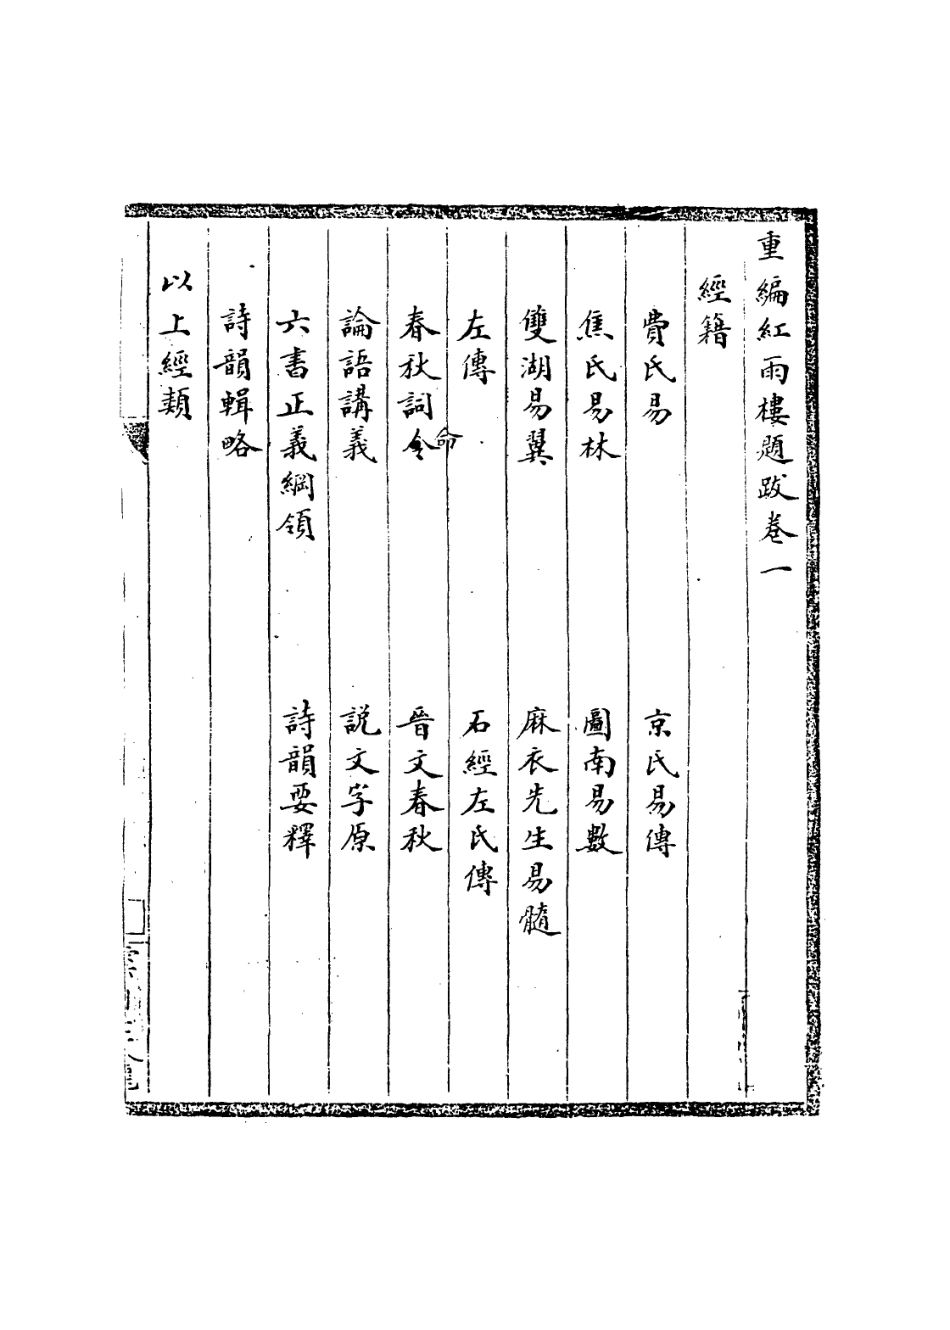 重編紅雨樓題跋卷一
經籍
費氏易 京氏易傳
焦氏易林 圖南易數
雙湖易翼 麻衣先生易髓
左傳 石經左氏傳
春秋詞令命 晉文春秋
論語講義 説文字原
六書正義綱領 詩韻要釋
詩韻輯略
以上經類